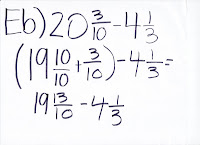 Eb) 20 3/10 - 4 1/3
(19 10/10 + 3/10) - 4 1/3 =
19 13/10 - 4 1/3